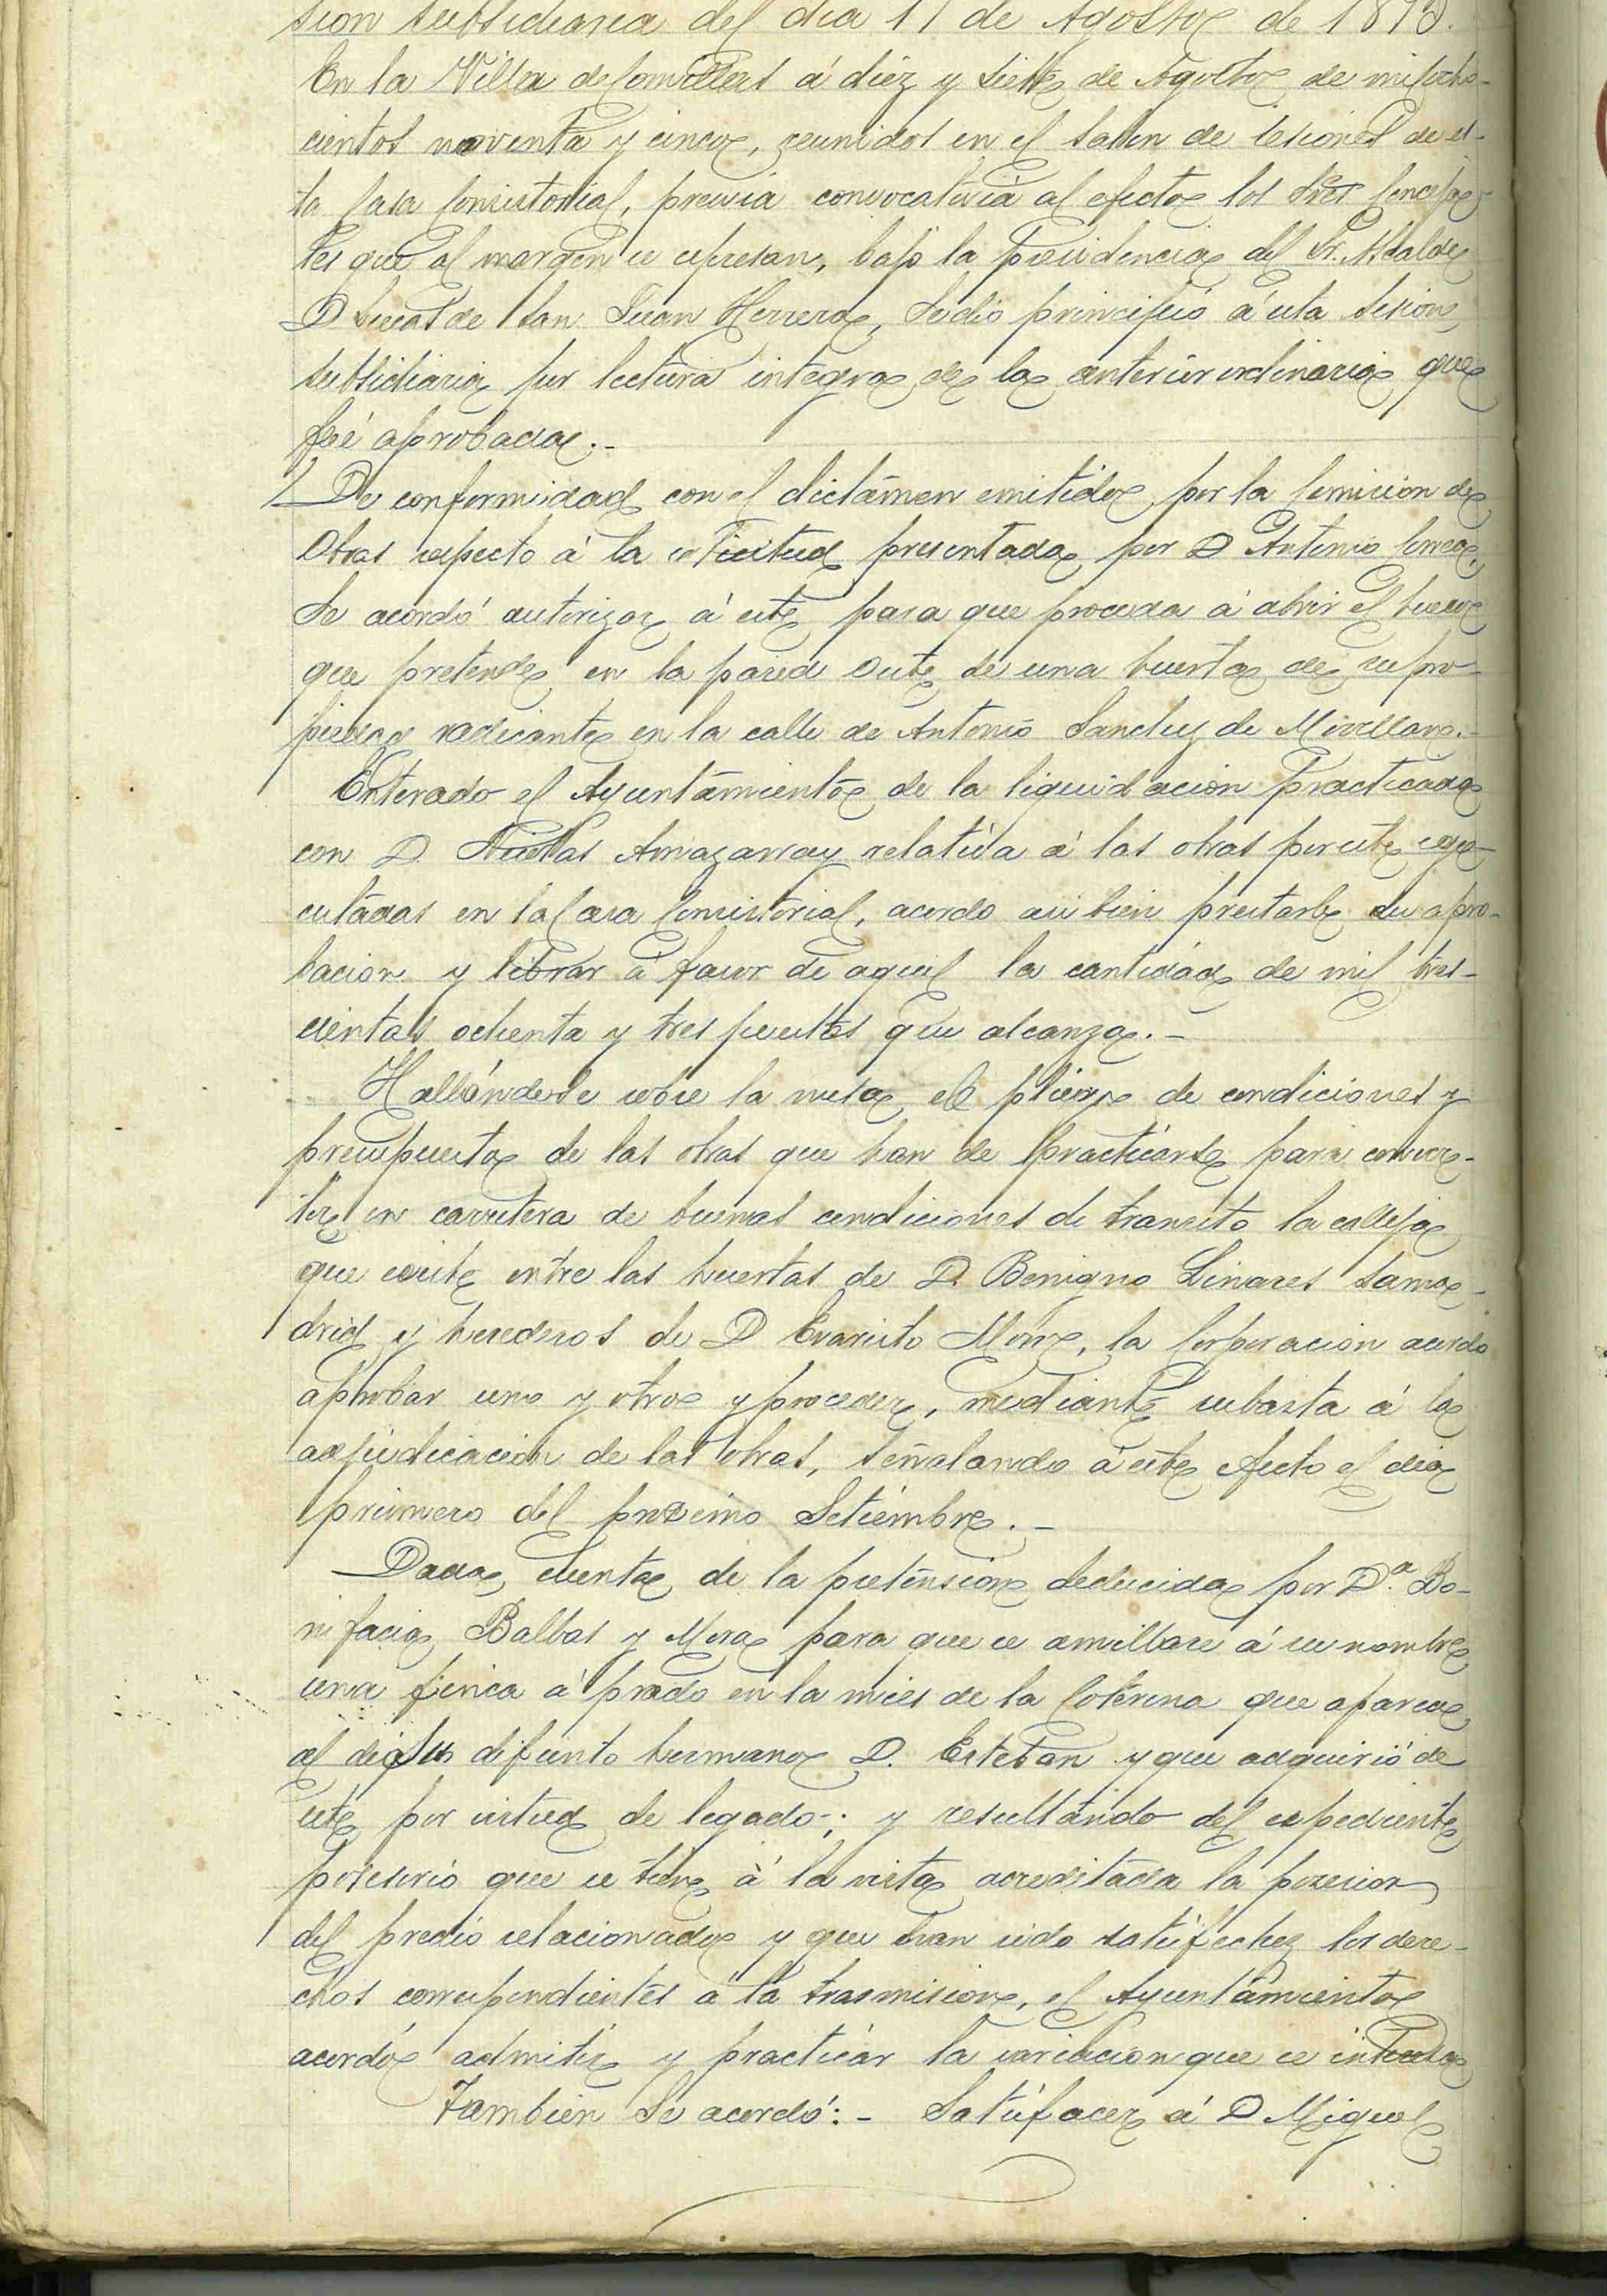 sion subsidiaria del dia 17 de Agosto de 1895.
En la Villa de Comillas á diez y siete de Agosto de mil ocho-
cientos noventa y cinco, reunidos en el salon de sesiones de es-
ta Casa Consistorial, previa convocatoria al efecto los Sres Conceja-
les que al margen se espresan, bajo la presidencia del Sr. Alcalde
D Lucas de San Juan Herrera, se dio principio á esta sesion
subsidiaria por lectura integra de la anterior ordinaria que
fué aprobada.-
De conformidad con el dictámen emitido por la Comision de
Obras respecto á la solicitud presentada por D Antonio Correa,
se acordó autorizar á este para que proceda á abrir el hueco
que pretende en la pared Oeste de una huerta de su pro-
piedad radicante en la calle de Antonio Sanchez de Movellan.-
Enterado el Ayuntamiento de la liquidacion practicada
con D. Nicolas Amazarray relativa á las obras por este eje-
cutadas en la Casa Consistorial, acordo asi bien prestarle su apro-
bacion y librar á favor de aquel la cantidad de mil tres-
cientas ochenta y tres pesetas que alcanza.-
Hallándose sobre la mesa el pliego de condiciones y
presupuesto de las obras que han de practicarse para conver-
tir en carretera de buenas condiciones de transito la calleja
que existe entre las huertas de D. Benigno Linares Lama-
drid y herederos de D Evaristo Mora, la Corporacion acordo
aprobar uno y otro y proceder, mediante subasta á la
adjudicacion de las obras, señalando á este efecto el dia
primero del proximo Setiembre.-
Dada cuenta de la pretension deducida por D.ª Bo-
nifacia Balbas y Mora para que se amillare á su nombre
una finca á prado en la mies de la Coterina que aparece
al de su difunto hermano D. Esteban y que adquirió de
este por virtud de legado; y resultando del espediente
posesorio que se tuvo á la vista acreditada la posesion
del predio relacionado y que han sido satisfechos los dere-
chos correspondientes á la trasmision, el Ayuntamiento
acordó admitir y practicar la variacion que se interesa
Tambien se acordó:- Satisfacer á D Miguel